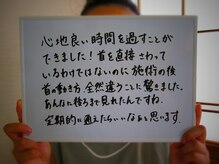 心地良い時間を過すことが
できました！首を直接さわって
いるわけではないのに施術の後
首の動き方 全然違うことに驚きました。
あんなに後ろまで見れたんですね。
定期的に通えたらいいなあと思います。